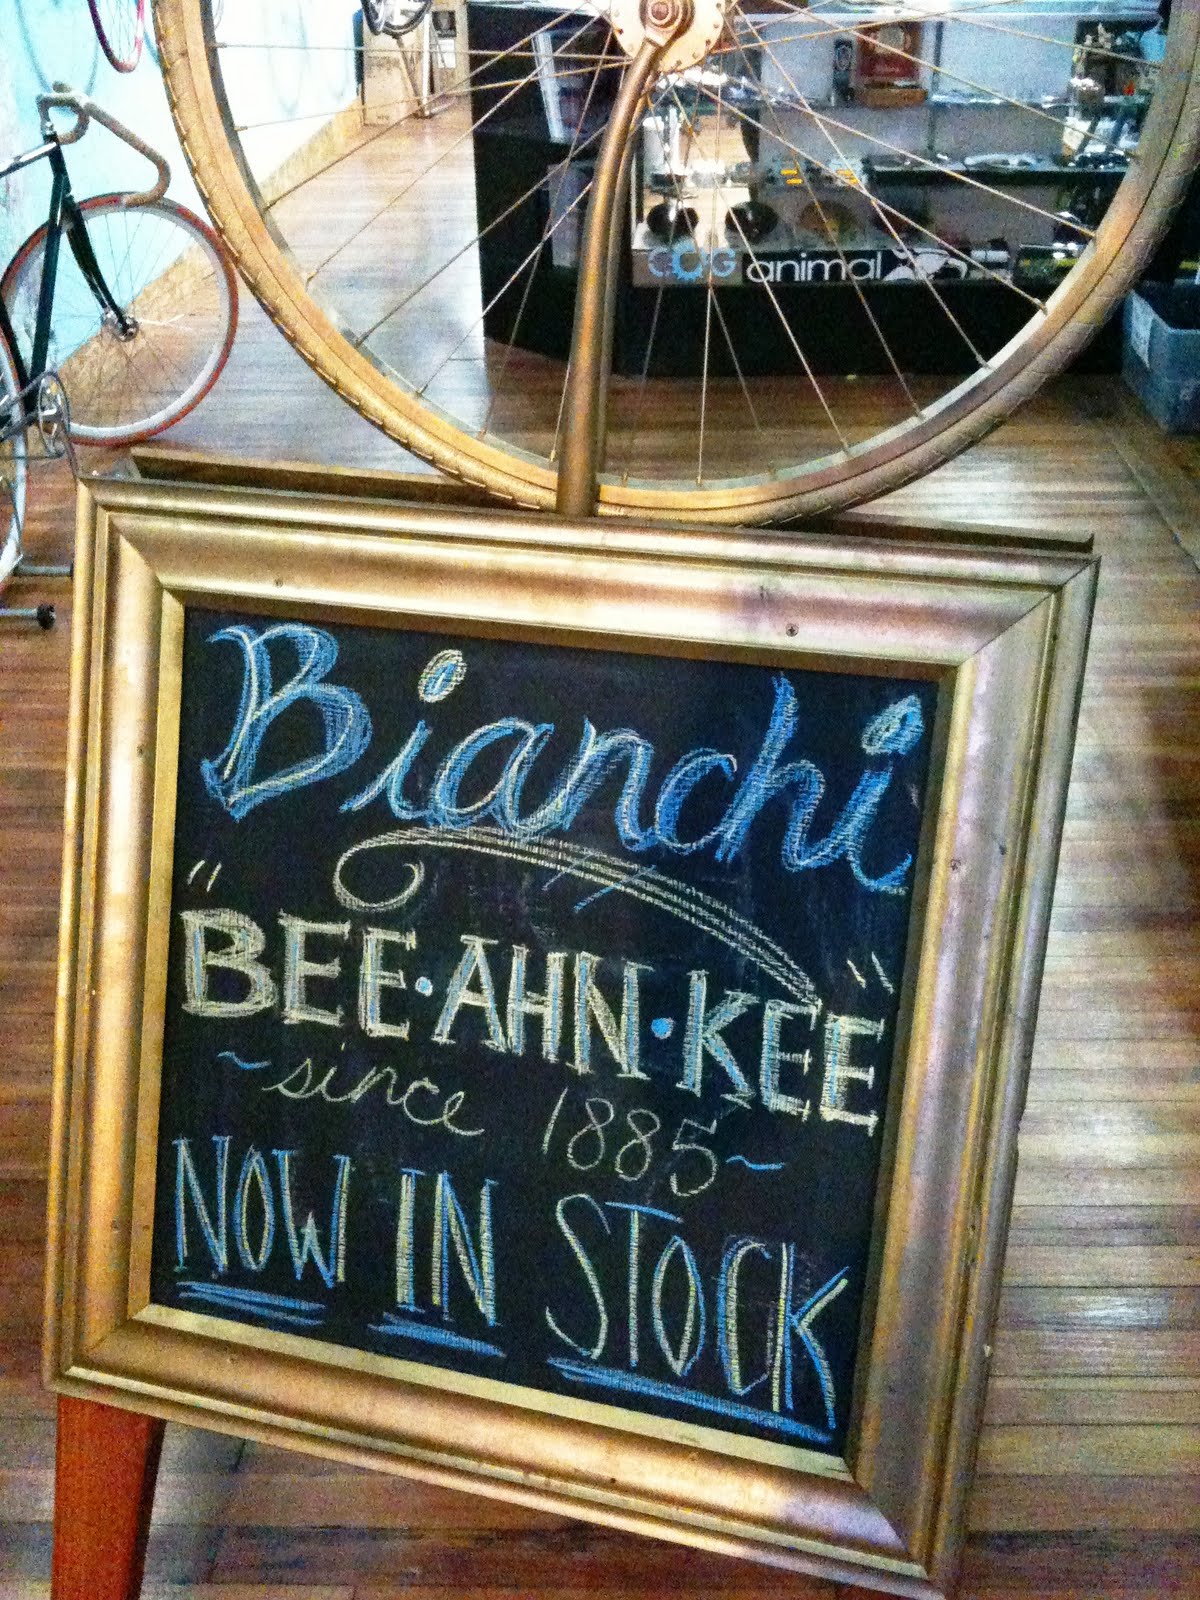 COG animal
Bianchi
"BEE·AHN·KEE"
~since 1885~
NOW IN STOCK